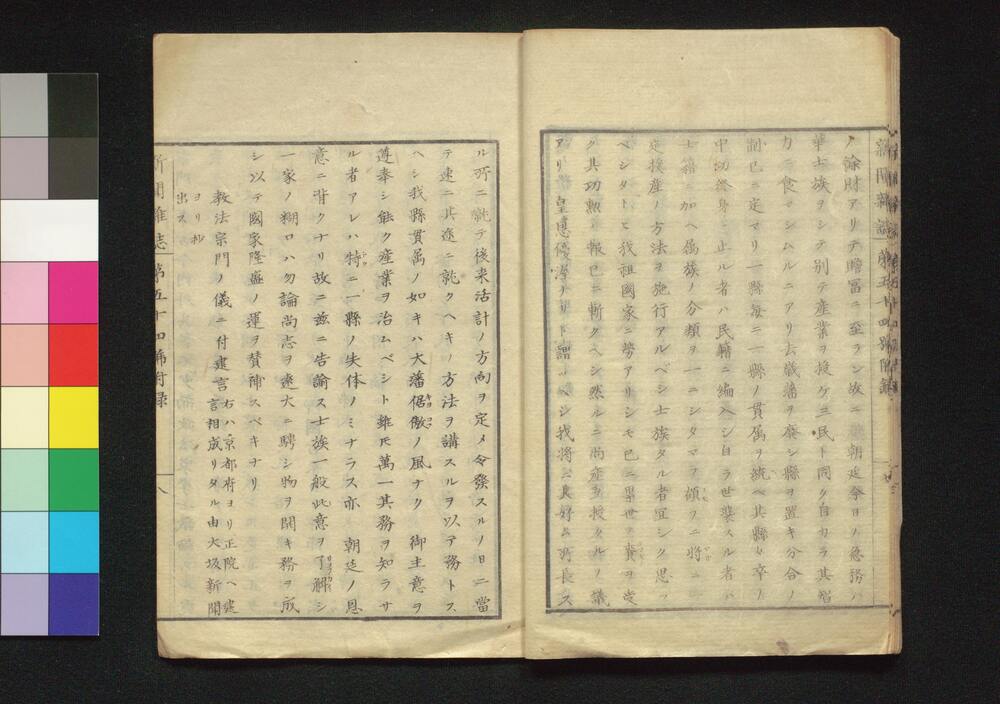 新聞雜誌 第五十四號附錄
ノ餘財アリテ贍富ニ至ラン故ニ 朝廷今日ノ急務ハ
華士族ヲシテ別テ産業ヲ授ケ三民ト同ク自カラ其智
力ニ食マシムルニアリ去歳藩ヲ廢シ縣ヲ置キ分合ノ
制已ニ定マリ一縣毎ニ一縣ノ貫属ヲ統ベ其縣女卒ノ
中幼終身ニ止ル者ハ民籍ニ編入シ自ラ世襲スル者ハ
士籍ニ加ヘ属族ノ分類ヲ一ニシタマフ傾フニ將ニ
定授産ノ方法ヲ施行アルベシ士族タル者宜シク思フ
ベシタトヒ我祖國家ニ勞アリシモ已ニ累世ノ
ク其功勲ノ報已ニ斬クヘシ然ルニ尚産ヲ授クルノ議
アリ 皇恩優渥ナリト謂ツベシ我將ニ其好ム所長ス
ル所ニ就テ後来活計ノ方向ヲ定メ令發スルノ日ニ當
テ速ニ其途ニ就クヘキノ方法ヲ講スルヲ以テ務トス
ヘシ我縣貫属ノ如キハ大藩倨傲ノ風ナク 御主意ヲ
遵奉シ能ク産業ヲ治ムベシト雖𪜈萬一其務ヲ知ラサ
ル者アレハ特ニ一縣ノ失体ノミナラス亦 朝廷ノ恩
意ニ背クナリ故ニ茲ニ告諭ス士族一般此意ヲ了解シ
一家ノ糊口ハ勿論尚志ヲ遠大ニ騁シ物ヲ開キ務ヲ成
シ以テ國家隆盛ノ運ヲ賛裨スベキナリ
教法宗門ノ儀ニ付建言 右ハ京都府ヨリ正院ヘ建
言相成リタル由大坂新聞
ヨリ抄
出ス
新聞雜誌 第五十四號附錄 八